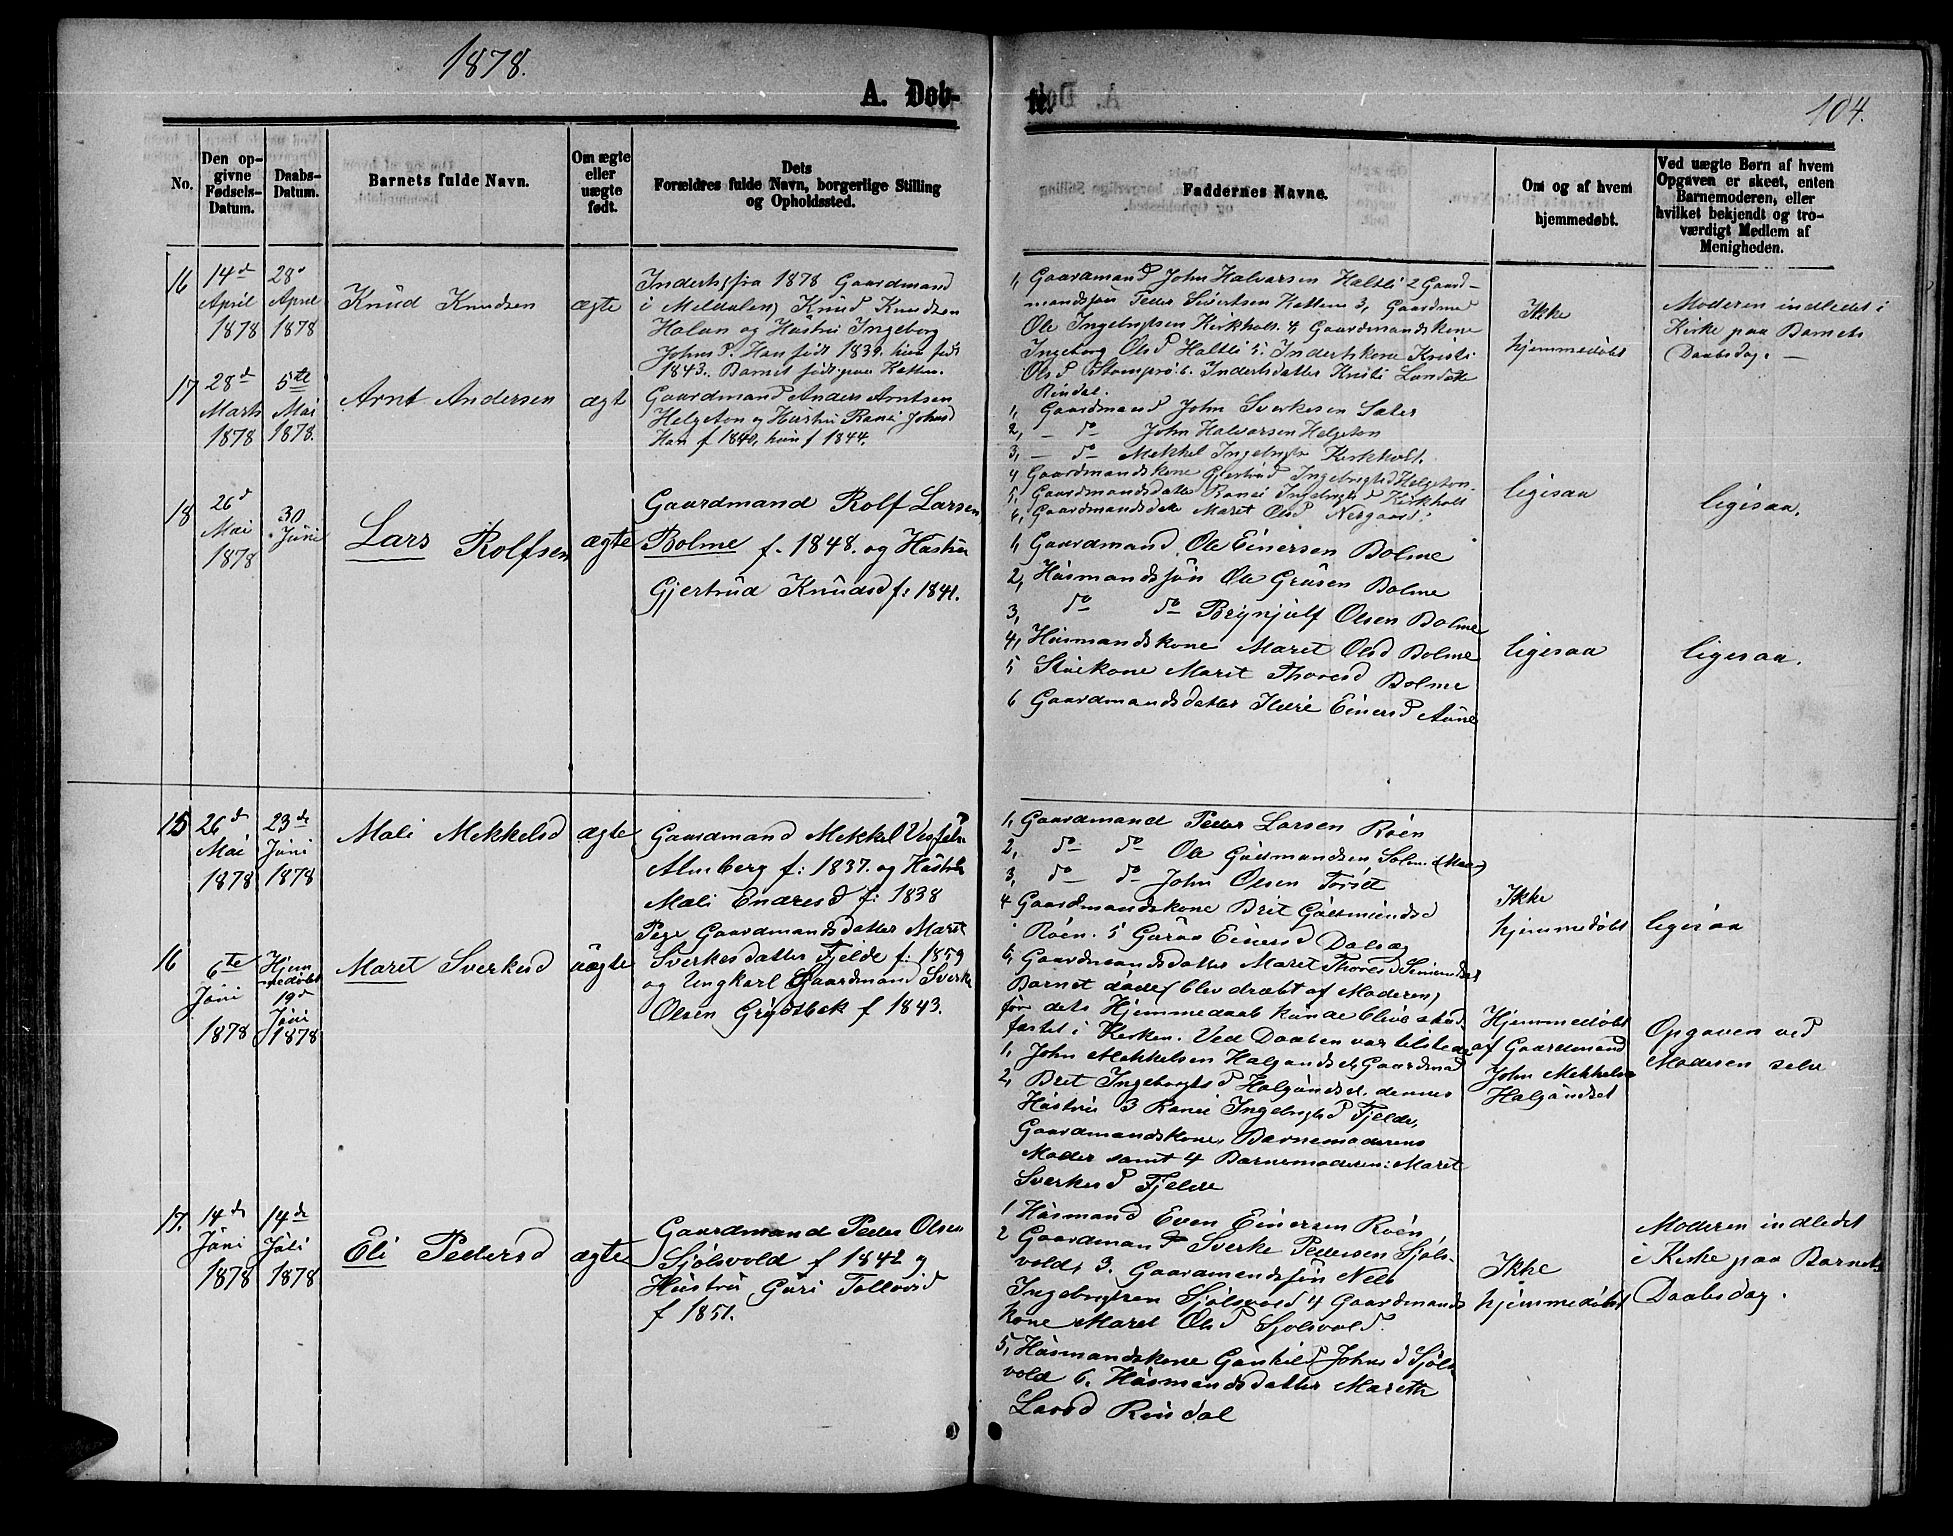 1878.
A. Døb-
te.
104.
No.
Den op-
givne
Fødsels-
Datum.
Daabs-
Datum.
Barnets fulde Navn.
Om ægte
eller
uægte
født.
Dets
Forældres fulde Navn, borgerlige Stilling
og Opholdssted.
Faddernes Navne.
Om og af hvem
hjemmedøbt.
Ved uægte Børn af hvem
Opgaven er skeet, enten
Barnemoderen, eller
hvilket bekjendt og tro-
værdigt Medlem af
Menigheden.
16
14d
April
1878
28d
April
1878
Knud Knudsen
ægte
Inderts, fra 1878 Gaardmand
i Meldalen, Knud Knudsen
Halan og Hustru Ingeborg
Johnsd. Han født 1839, hun født
1843. Barnet født paa
1, Gaardmand John Halvorsen Haltli 2 Gaard-
mandssøn Peder Sivertsen 3, Gaardmd
Ole Ingebrigtsen Kirkholt 4 Gaardmandskone
Ingeborg Olsd Haltli 5, Indertskone Kristi
Olsd 6. Indertsdatter Kristi
Rindal.
Ikke
hjemmedøbt
Moderen indledet i
Kirke paa Barnets
Daabsdag. —
17
28d
Marts
1878
5te
Mai
1878.
Arnt Andersen
ægt
Gaardmand Anders Arntsen
Helgeton og Hustru Ranei Johnsd
Han f 1840, hun f 1844.
1, Gaardmand John Sverkesen Sæter
2, — do John Halvorsen Helgeton
3, — do Mekkel Ingebrigts Kirkholt.
4 Gaardmandskone Gjertrud Ingebrigtsd Helgeton
5, Gaardmandsdatter Ranei Ingebrigtsd Kirkholt
6, Gaardmandsdatr Maret Olsd Nergaard.
ligesaa
ligesaa.
18
26d
Mai
1878
30
Juni
Lars Rolfsen
ægte
Gaardmand Rolf Larsen
Bolme f. 1848. og Hustru
Gjertrud Knudsd f: 1841.
1, Gaardmand Ole Einersen Bolme
2, Husmandssøn Ole Bolme
3, do do Brynjulf Olsen Bolme
4, Husmandskone Maret Olsd Bolme
5 Maret Thoresd Bolme
6 Gaardmandsdatter Einersd Aune
ligesaa
ligesaa.
15
26d
Mai
1878
23de
Juni
1878
Mali Mekkelsd
ægte
Gaardmand Mekkel
Almberg f: 1837. og Hustru
Mali Endresd f: 1838
1, Gaardmand Peder Larsen Roen
2, do do Ole Gudmundsen
3, do do John Olsen Torset
4 Gaardmandskone Brit Gudmundsd
Roen. 5 Guroe Einersd
6, Gaardmandsdatter Maret Thoresd
Ikke
hjemmedøbt
ligesaa
16
6te
Juni
1878
Hjem
medøbt
19d
Juni
1878
Maret Sverkesd
uægte
Pige Gaardmandsdatter Maret
Sverkesdatter Fjelde f: 1859
og Ungkarl Gaardmand Sverke
Olsen Grytbæk f 1843.
Barnet døde (blev dræbt af Moderen)
før dets Hjemmedaab kunde blive stad-
fæstet i Kirken. Ved Daaben var tilstede
1, John Mekkelsen Halgundset, Gaardmd
2, Brit Ingebrigtsd Halgundset, dennes
Hustru 3 Ranei Ingebrigtsd Fjelde,
Gaardmandskone, Barnemoderens
Moder samt 4 Barnemoderen: Maret
Sverkesd Fjelde
Hjemmedøbt
af Gaardmand
John Mekkelsen
Halgundset
Opgaven ved
Moderen selv
17.
14de
Juni
1878
14de
Juli
1878
Eli Pedersd
ægte
Gaardmand Peder Olsen
Sjølsvold f 1842 og
Hustru Guri Tollevsd
f 1851.
1 Husmand Even Einersen Roen
2 Gaardmand Sverke Pedersen Sjøls-
vold, 3. Gaardmandssøn Nels
Ingebrigtsen Sjølsvold 4 Gaardmands
kone Maret Olsd Sjolsvold.
5, Husmandskone Gunhild Johnsd Sjøls
vold 6. Husmandsdatter Mareth
Larsd Rindal
Ikke
hjemmedøbt
Moderen indledet
i Kirke paa Barnets
Daabsdag.